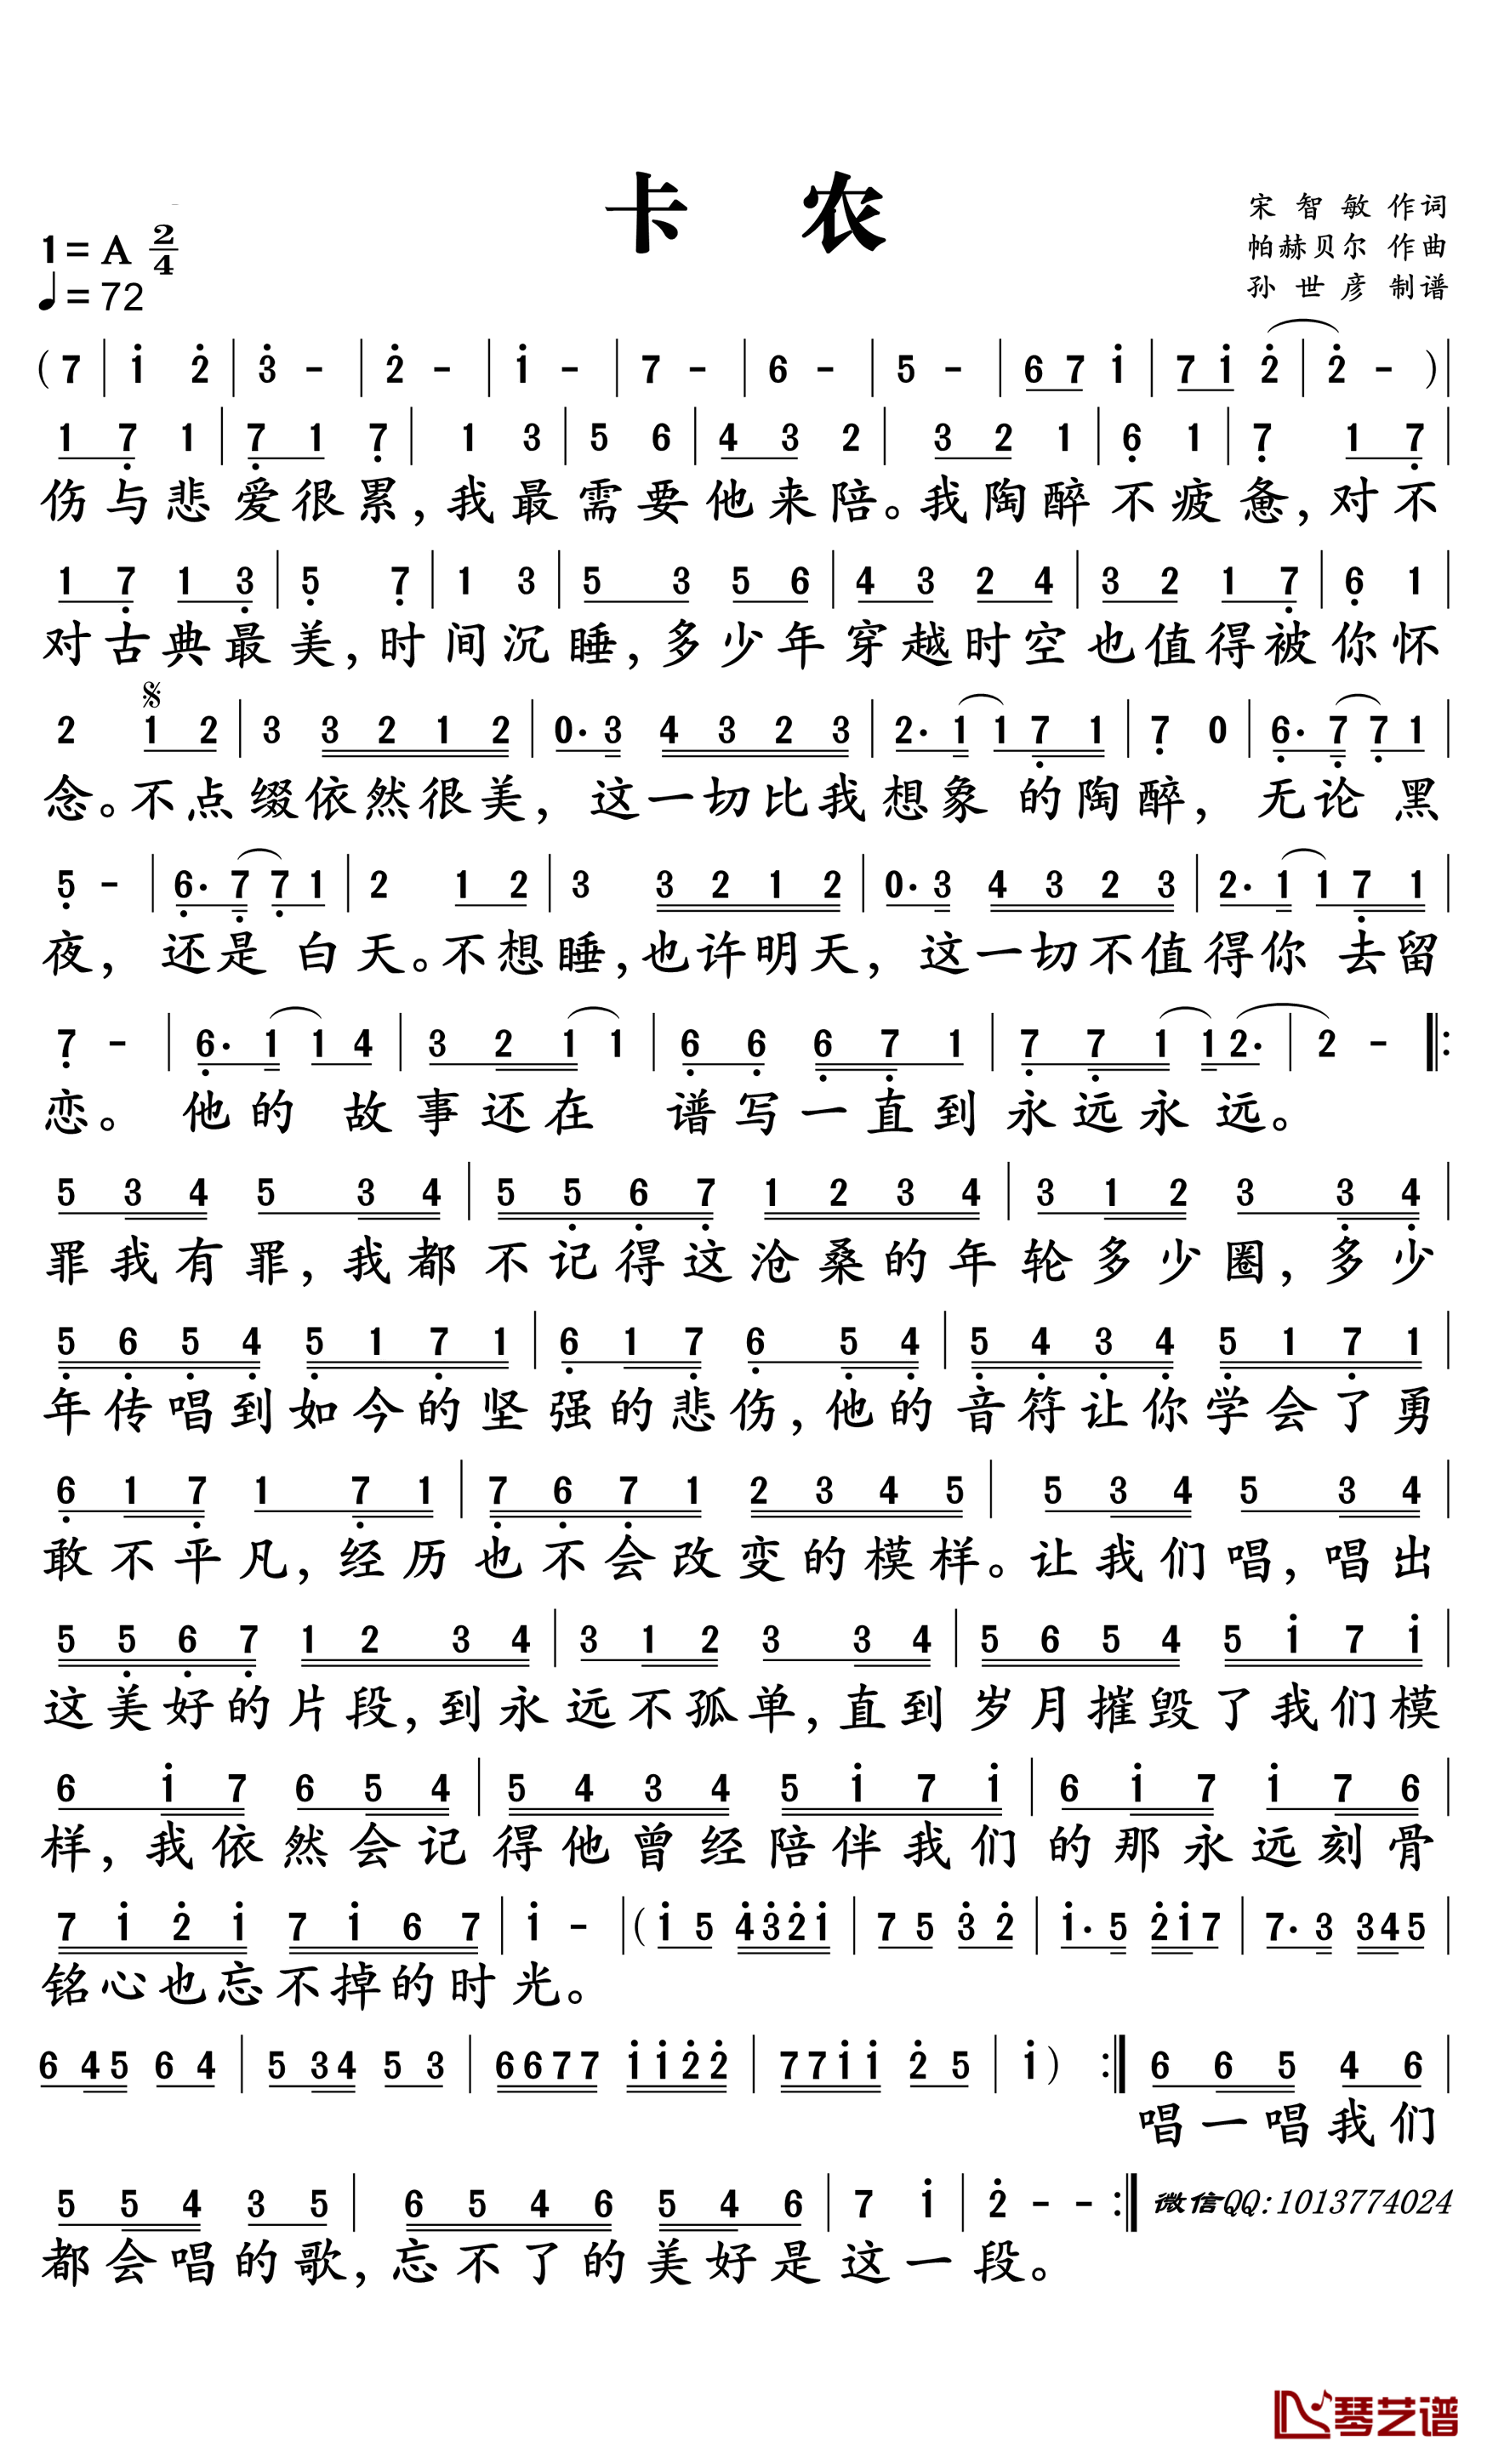 卡 农
宋 智 敏 作词
帕赫贝尔 作曲
孙 世 彦 制谱
1=A 2/4
♩=72
(7 | 1 2 | 3 - | 2 - | 1 - | 7 - | 6 - | 5 - | 6 7 1 | 7 1 2 | 2 - ) |
1 7 1 | 7 1 7 | 1 3 | 5 6 | 4 3 2 | 3 2 1 | 6 1 | 7 1 7 |
伤与悲爱很累,我最需要他来陪。我陶醉不疲惫,对不
1 7 1 3 | 5 7 | 1 3 | 5 3 5 6 | 4 3 2 4 | 3 2 1 7 | 6 1 |
对古典最美,时间沉睡,多少年穿越时空也值得被你怀
2 1 2 | 3 3 2 1 2 | 0· 3 4 3 2 3 | 2· 1 1 7 1 | 7 0 | 6· 7 7 1 |
念。不点缀依然很美,这一切比我想象的陶醉,无论黑
5 - | 6· 7 7 1 | 2 1 2 | 3 3 2 1 2 | 0· 3 4 3 2 3 | 2· 1 1 7 1 |
夜,还是白天。不想睡,也许明天,这一切不值得你去留
7 - | 6· 1 1 4 | 3 2 1 1 | 6 6 6 7 1 | 7 7 1 1 2· | 2 - |:
恋。他的故事还在谱写一直到永远永远。
5 3 4 5 3 4 | 5 5 6 7 1 2 3 4 | 3 1 2 3 3 4 |
罪我有罪,我都不记得这沧桑的年轮多少圈,多少
5 6 5 4 5 1 7 1 | 6 1 7 6 5 4 | 5 4 3 4 5 1 7 1 |
年传唱到如今的坚强的悲伤,他的音符让你学会了勇
6 1 7 1 7 1 | 7 6 7 1 2 3 4 5 | 5 3 4 5 3 4 |
敢不平凡,经历也不会改变的模样。让我们唱,唱出
5 5 6 7 1 2 3 4 | 3 1 2 3 3 4 | 5 6 5 4 5 1 7 1 |
这美好的片段,到永远不孤单,直到岁月摧毁了我们模
6 1 7 6 5 4 | 5 4 3 4 5 1 7 1 | 6 1 7 1 7 6 |
样,我依然会记得他曾经陪伴我们的那永远刻骨
7 1 2 1 7 1 6 7 | 1 - | (1 5 4 3 2 1 | 7 5 3 2 | 1· 5 2 1 7 | 7· 3 3 4 5 |
铭心也忘不掉的时光。
6 4 5 6 4 | 5 3 4 5 3 | 6 6 7 7 1 1 2 2 | 7 7 1 1 2 5 | 1 ) :| 6 6 5 4 6 |
唱一唱我们
5 5 4 3 5 | 6 5 4 6 5 4 6 | 7 1 | 2 - - :| 微信QQ:1013774024
都会唱的歌,忘不了的美好是这一段。
琴艺谱